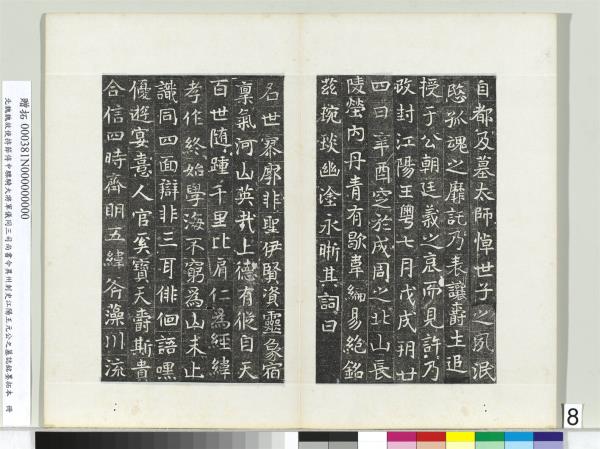 自都及墓太師悼世子之夙泯
愍孤魂之靡託乃表讓壽土追
授于公朝廷義之哀而見許乃
改封江陽王粵七月戊戌朔廿
四日辛酉窆於成周之北山長
陵塋內丹青有歇韋編易絕銘
茲琬琰幽淦永晰其詞曰
名世寥廓非聖伊賢資靈象宿
稟氣河山英哉上德有從自天
百世隨踵千里比肩仁為經緯
孝作終始學海不窮為山未止
識同四面辯非三耳俳徊語嘿
優遊宴憙人官矣寶天壽斯貴
合信四時齊明五緯斧藻川流
贈拓 000381N000000000
北魏魏故使持節侍中驃騎大將軍儀同三司尚書令冀州刺史江陽王元公之墓誌銘墨拓本 冊
8